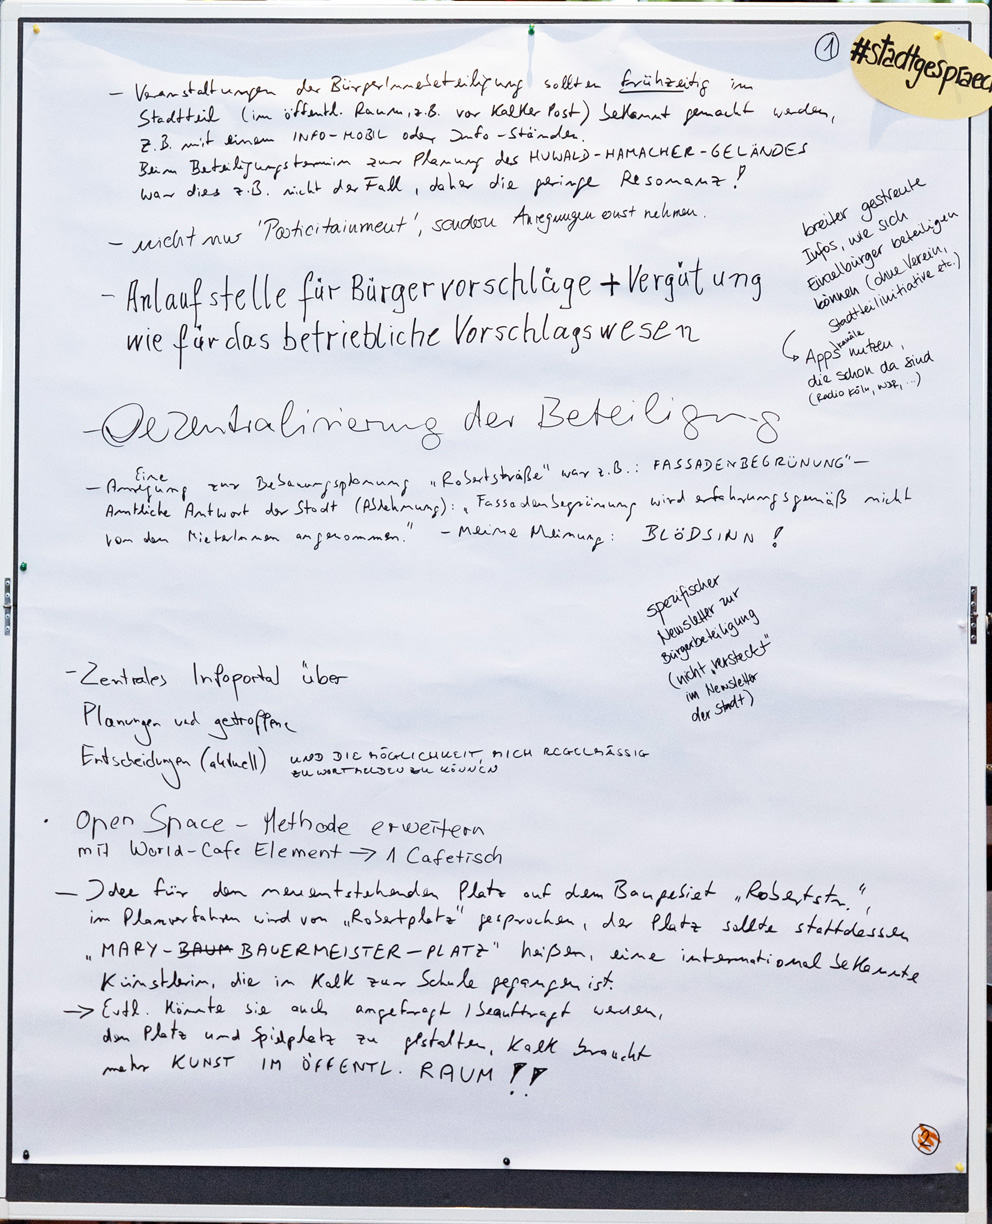 1
#stadtgespraec
- Veranstaltungen der BürgerInnebeteiligung sollten frühzeitig im
Stadtteil (im öffentl. Raum, z.B. vor Kalker Post) bekannt gemacht werden,
z.B. mit einem INFO-MOBIL oder Info-Ständen.
Beim Beteiligungstermin zur Planung des HUWALD-HAMACHER-GELÄNDES
war dies z.B. nicht der Fall, daher die geringe Resonanz!
- nicht nur 'Particitainment', sondern Anregungen ernst nehmen.
- Anlaufstelle für Bürgervorschläge + Vergütung
wie für das betriebliche Vorschlagswesen
breiter gestreute
Infos, wie sich
Einzelbürger beteiligen
können (ohne Verein,
Stadtteilinitiative etc.)
Apps / Kanäle nutzen,
die schon da sind
(Radio Köln, WDR, ...)
- Dezentralisierung der Beteiligung
- Eine Anregung zur Bebauungsplanung „Robertstraße" war z.B.: FASSADENBEGRÜNUNG" -
Amtliche Antwort der Stadt (Ablehnung): „Fassadenbegrünung wird erfahrungsgemäß nicht
von den MieterInnen angenommen." - Meine Meinung: BLÖDSINN!
spezifischer
Newsletter zur
Bürgerbeteiligung
(nicht „versteckt"
im Newsletter
der Stadt)
- Zentrales Infoportal über
Planungen und getroffene
Entscheidungen (aktuell) UND DIE MÖGLICHKEIT, MICH REGELMÄSSIG
ZU WORT MELDEN ZU KÖNNEN
· Open Space - Methode erweitern
mit World-Cafe Element → 1 Cafetisch
- Idee für den neuentstehenden Platz auf dem Baugebiet „Robertstr.",
im Planverfahren wird von „Robertplatz" gesprochen, der Platz sollte stattdessen
„MARY-BAUM BAUERMEISTER-PLATZ" heißen, eine international bekannte
Künstlerin, die in Kalk zur Schule gegangen ist.
→ Evtl. könnte sie auch angefragt / beauftragt werden,
den Platz und Spielplatz zu gestalten, Kalk braucht
mehr KUNST IM ÖFFENTL. RAUM !!
2